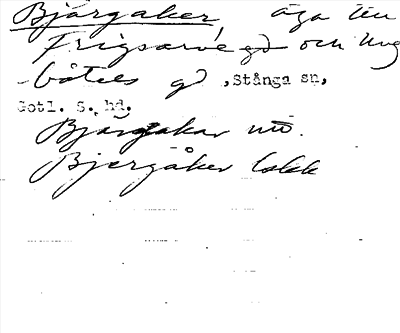 Bjärgåker, äga till
Frigsarve gd och Ung
-båtels gd, Stånga sn,
Gotl. S. hd.
Bjärgakar utt.
Bjärgåker lokk